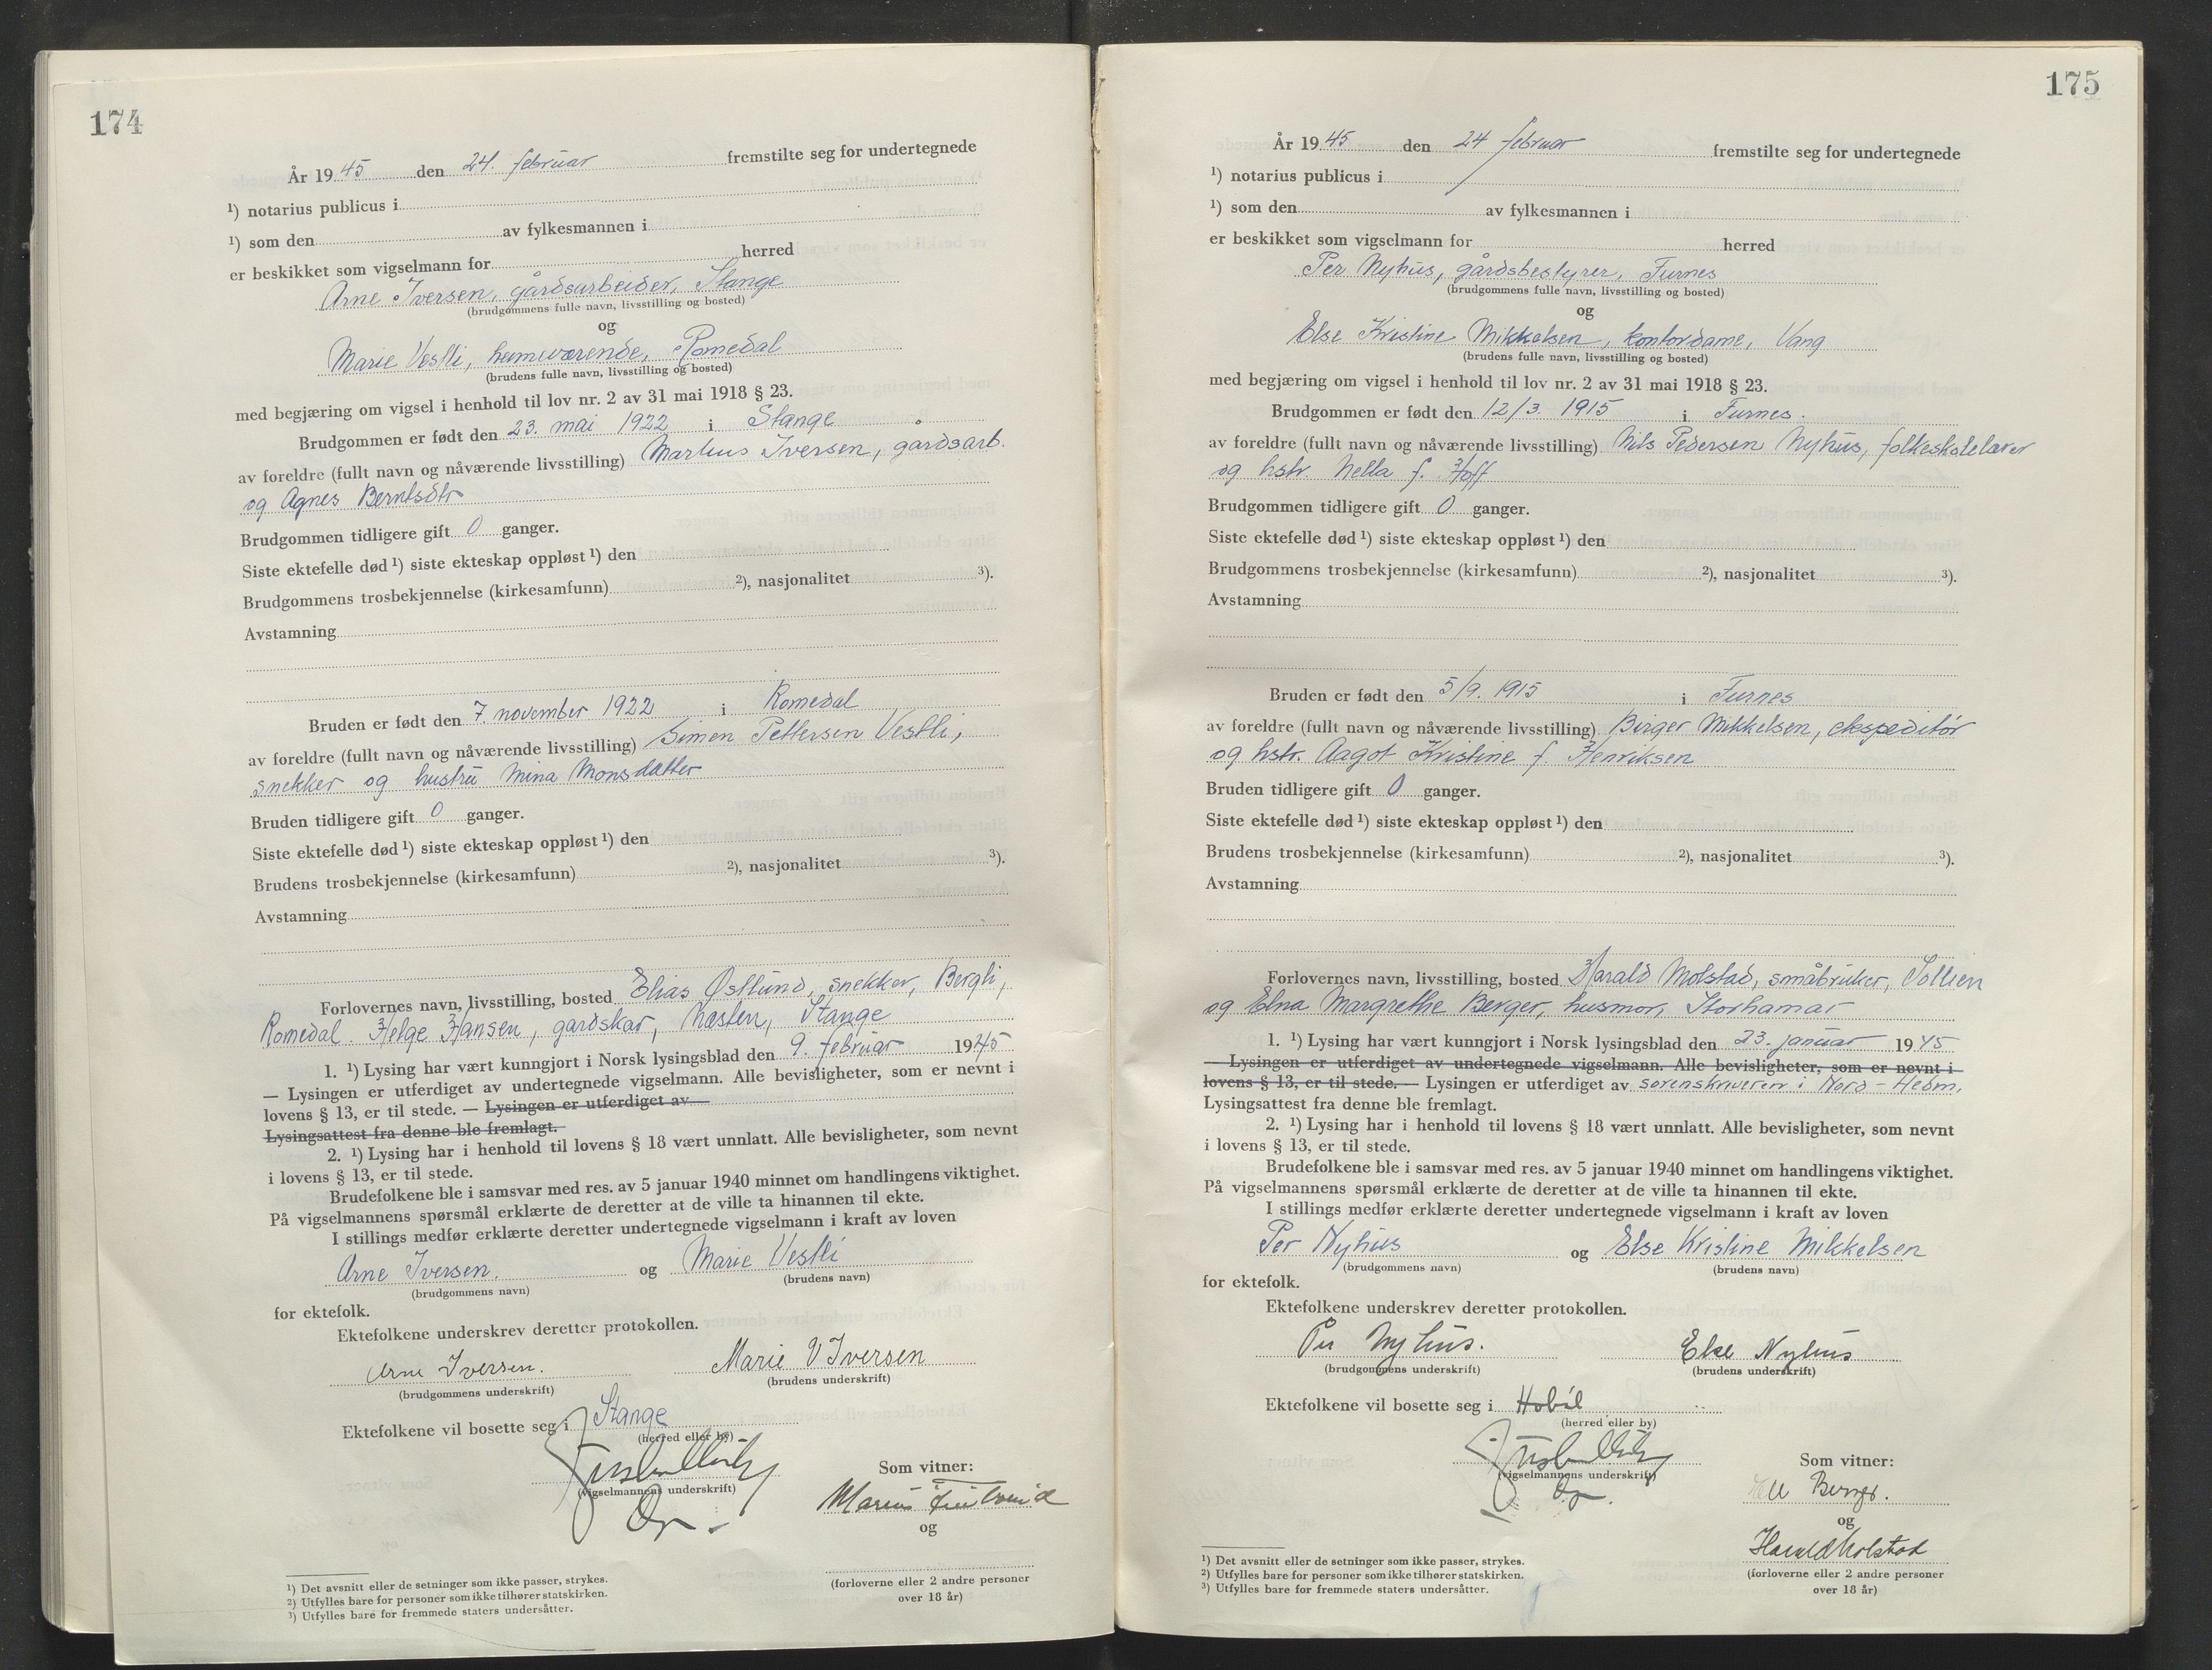 174
År 1945 den 24. februar fremstilte seg for undertegnede
¹) notarius publicus i
¹) som den av fylkesmannen i
er beskikket som vigselmann for herred
Arne Iversen, gårdsarbeider, Stange
(brudgommens fulle navn, livsstilling og bosted)
og
Marie Vestli, heimeværende, Romedal
(brudens fulle navn, livsstilling og bosted)
med begjæring om vigsel i henhold til lov nr. 2 av 31 mai 1918 § 23.
Brudgommen er født den 23. mai 1922 i Stange
av foreldre (fullt navn og nåværende livsstilling) Martius Iversen, gårdsarb.
og Agnes Berntsdtr
Brudgommen tidligere gift 0 ganger.
Siste ektefelle død ¹) siste ekteskap oppløst ¹) den
Brudgommens trosbekjennelse (kirkesamfunn) ²), nasjonalitet ³).
Avstamning
Bruden er født den 7. november 1922 i Romedal
av foreldre (fullt navn og nåværende livsstilling) Simen Pettersen Vestli,
snekker og hustru Mina Monsdatter
Bruden tidligere gift 0 ganger.
Siste ektefelle død ¹) siste ekteskap oppløst ¹) den
Brudens trosbekjennelse (kirkesamfunn) ²), nasjonalitet ³).
Avstamning
Forlovernes navn, livsstilling, bosted Elias Østlund, snekker, Bergli,
Romedal. Helge Hansen, gardskar, Næsten, Stange
1. ¹) Lysing har vært kunngjort i Norsk lysingsblad den 9. februar 1945
— Lysingen er utferdiget av undertegnede vigselmann. Alle bevisligheter, som er nevnt i
lovens § 13, er til stede. — Lysingen er utferdiget av
Lysingsattest fra denne ble fremlagt.
2. ¹) Lysing har i henhold til lovens § 18 vært unnlatt. Alle bevisligheter, som nevnt
i lovens § 13, er til stede.
Brudefolkene ble i samsvar med res. av 5 januar 1940 minnet om handlingens viktighet.
På vigselmannens spørsmål erklærte de deretter at de ville ta hinannen til ekte.
I stillings medfør erklærte deretter undertegnede vigselmann i kraft av loven
Arne Iversen. og Marie Vestli
(brudgommens navn) (brudens navn)
for ektefolk.
Ektefolkene underskrev deretter protokollen.
Arne Iversen. Marie V Iversen
(brudgommens underskrift) (brudens underskrift)
Ektefolkene vil bosette seg i Stange
(herred eller by)
(vigselmannens underskrift)
Som vitner:
Marius
og
(forloverne eller 2 andre personer
over 18 år)
¹) Det avsnitt eller de setninger som ikke passer, strykes.
²) Utfylles bare for personer som ikke tilhører statskirken.
³) Utfylles bare for fremmede staters undersåtter.
175
År 1945 den 24 februar fremstilte seg for undertegnede
¹) notarius publicus i
¹) som den av fylkesmannen i
er beskikket som vigselmann for herred
Per Nyhus, gårdsbestyrer, Furnes
(brudgommens fulle navn, livsstilling og bosted)
og
Else Kristine Mikkelsen, kontordame, Vang
(brudens fulle navn, livsstilling og bosted)
med begjæring om vigsel i henhold til lov nr. 2 av 31 mai 1918 § 23.
Brudgommen er født den 12/3. 1915 i Furnes.
av foreldre (fullt navn og nåværende livsstilling) Nils Pedersen Nyhus, folkeskolelærer
og hstr. Nella f. Hoff
Brudgommen tidligere gift 0 ganger.
Siste ektefelle død ¹) siste ekteskap oppløst ¹) den
Brudgommens trosbekjennelse (kirkesamfunn) ²), nasjonalitet ³).
Avstamning
Bruden er født den 5/9. 1915 i Furnes
av foreldre (fullt navn og nåværende livsstilling) Birger Mikkelsen, ekspeditør
og hstr. Aagot Kristine f. Henriksen
Bruden tidligere gift 0 ganger.
Siste ektefelle død ¹) siste ekteskap oppløst ¹) den
Brudens trosbekjennelse (kirkesamfunn) ²), nasjonalitet ³).
Avstamning
Forlovernes navn, livsstilling, bosted Harald Molstad, småbruker, Sollien
og Elna Margrethe Berger, husmor, Storhamar
1. ¹) Lysing har vært kunngjort i Norsk lysingsblad den 23. januar 1945
— Lysingen er utferdiget av undertegnede vigselmann. Alle bevisligheter, som er nevnt i
lovens § 13, er til stede. — Lysingen er utferdiget av sorenskriveren i Nord-Hedm.
Lysingsattest fra denne ble fremlagt.
2. ¹) Lysing har i henhold til lovens § 18 vært unnlatt. Alle bevisligheter, som nevnt
i lovens § 13, er til stede.
Brudefolkene ble i samsvar med res. av 5 januar 1940 minnet om handlingens viktighet.
På vigselmannens spørsmål erklærte de deretter at de ville ta hinannen til ekte.
I stillings medfør erklærte deretter undertegnede vigselmann i kraft av loven
Per Nyhus og Else Kristine Mikkelsen
(brudgommens navn) (brudens navn)
for ektefolk.
Ektefolkene underskrev deretter protokollen.
Per Nyhus. Else Nyhus
(brudgommens underskrift) (brudens underskrift)
Ektefolkene vil bosette seg i Hobøl
(herred eller by)
(vigselmannens underskrift)
Som vitner:
Berger.
og
Harald Molstad
(forloverne eller 2 andre personer
over 18 år)
¹) Det avsnitt eller de setninger som ikke passer, strykes.
²) Utfylles bare for personer som ikke tilhører statskirken.
³) Utfylles bare for fremmede staters undersåtter.